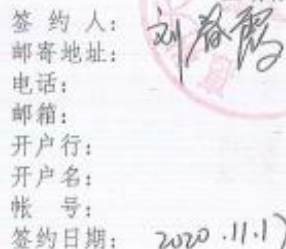 签 约 人： 刘春霞
邮寄地址：
电话：
邮箱：
开户行：
开户名：
帐 号：
签约日期： 2020.11.17